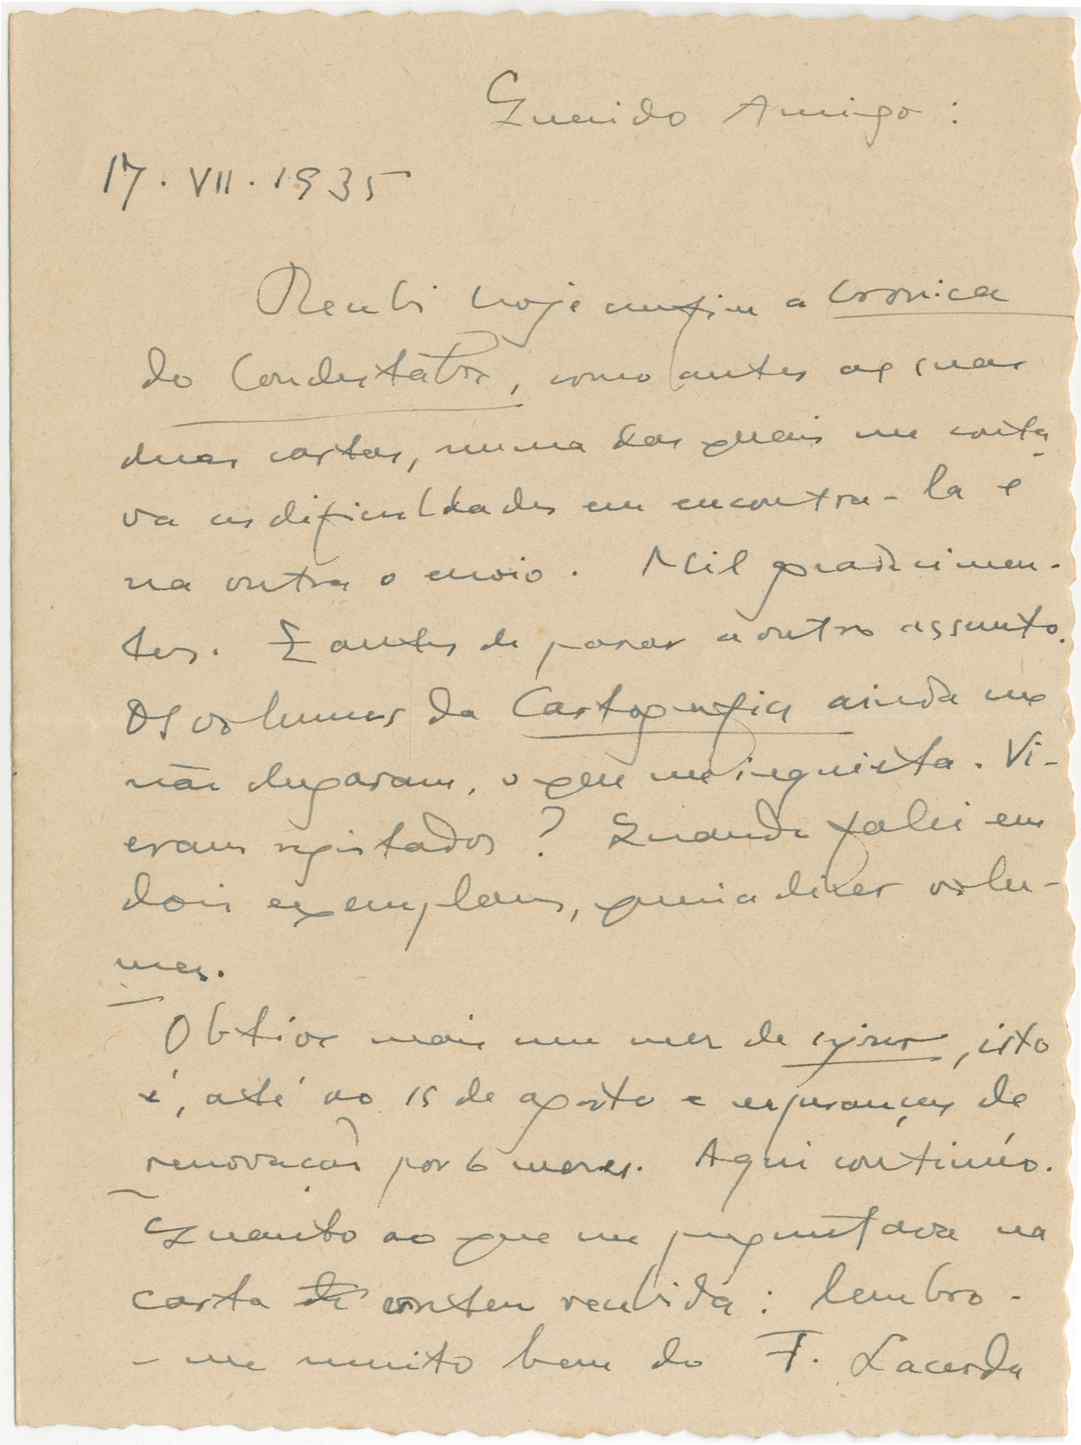 Querido Amigo:
17. VII. 1935
Recebi hoje enfim a Cronica
do Condestabre, como antes as suas
duas cartas, numa das quais me conta-
va as dificuldades em encontra-la e
na outra o envio. Mil gradecimen-
tos. E antes de passar a outro assunto.
Os volumes da Cartografia ainda me
não chegaram, o que me inquieta. Vi-
eram registados? Quando falei em
dois exemplares, queria dizer volu-
mes.
Obtive mais um mez de sejour, isto
é, até ao 15 de agosto e esperanças de
renovação por 6 meses. Aqui continúo.
Quanto ao que me preguntava na
carta de ontem recebida: lembro-
-me muito bem do F. Lacerda